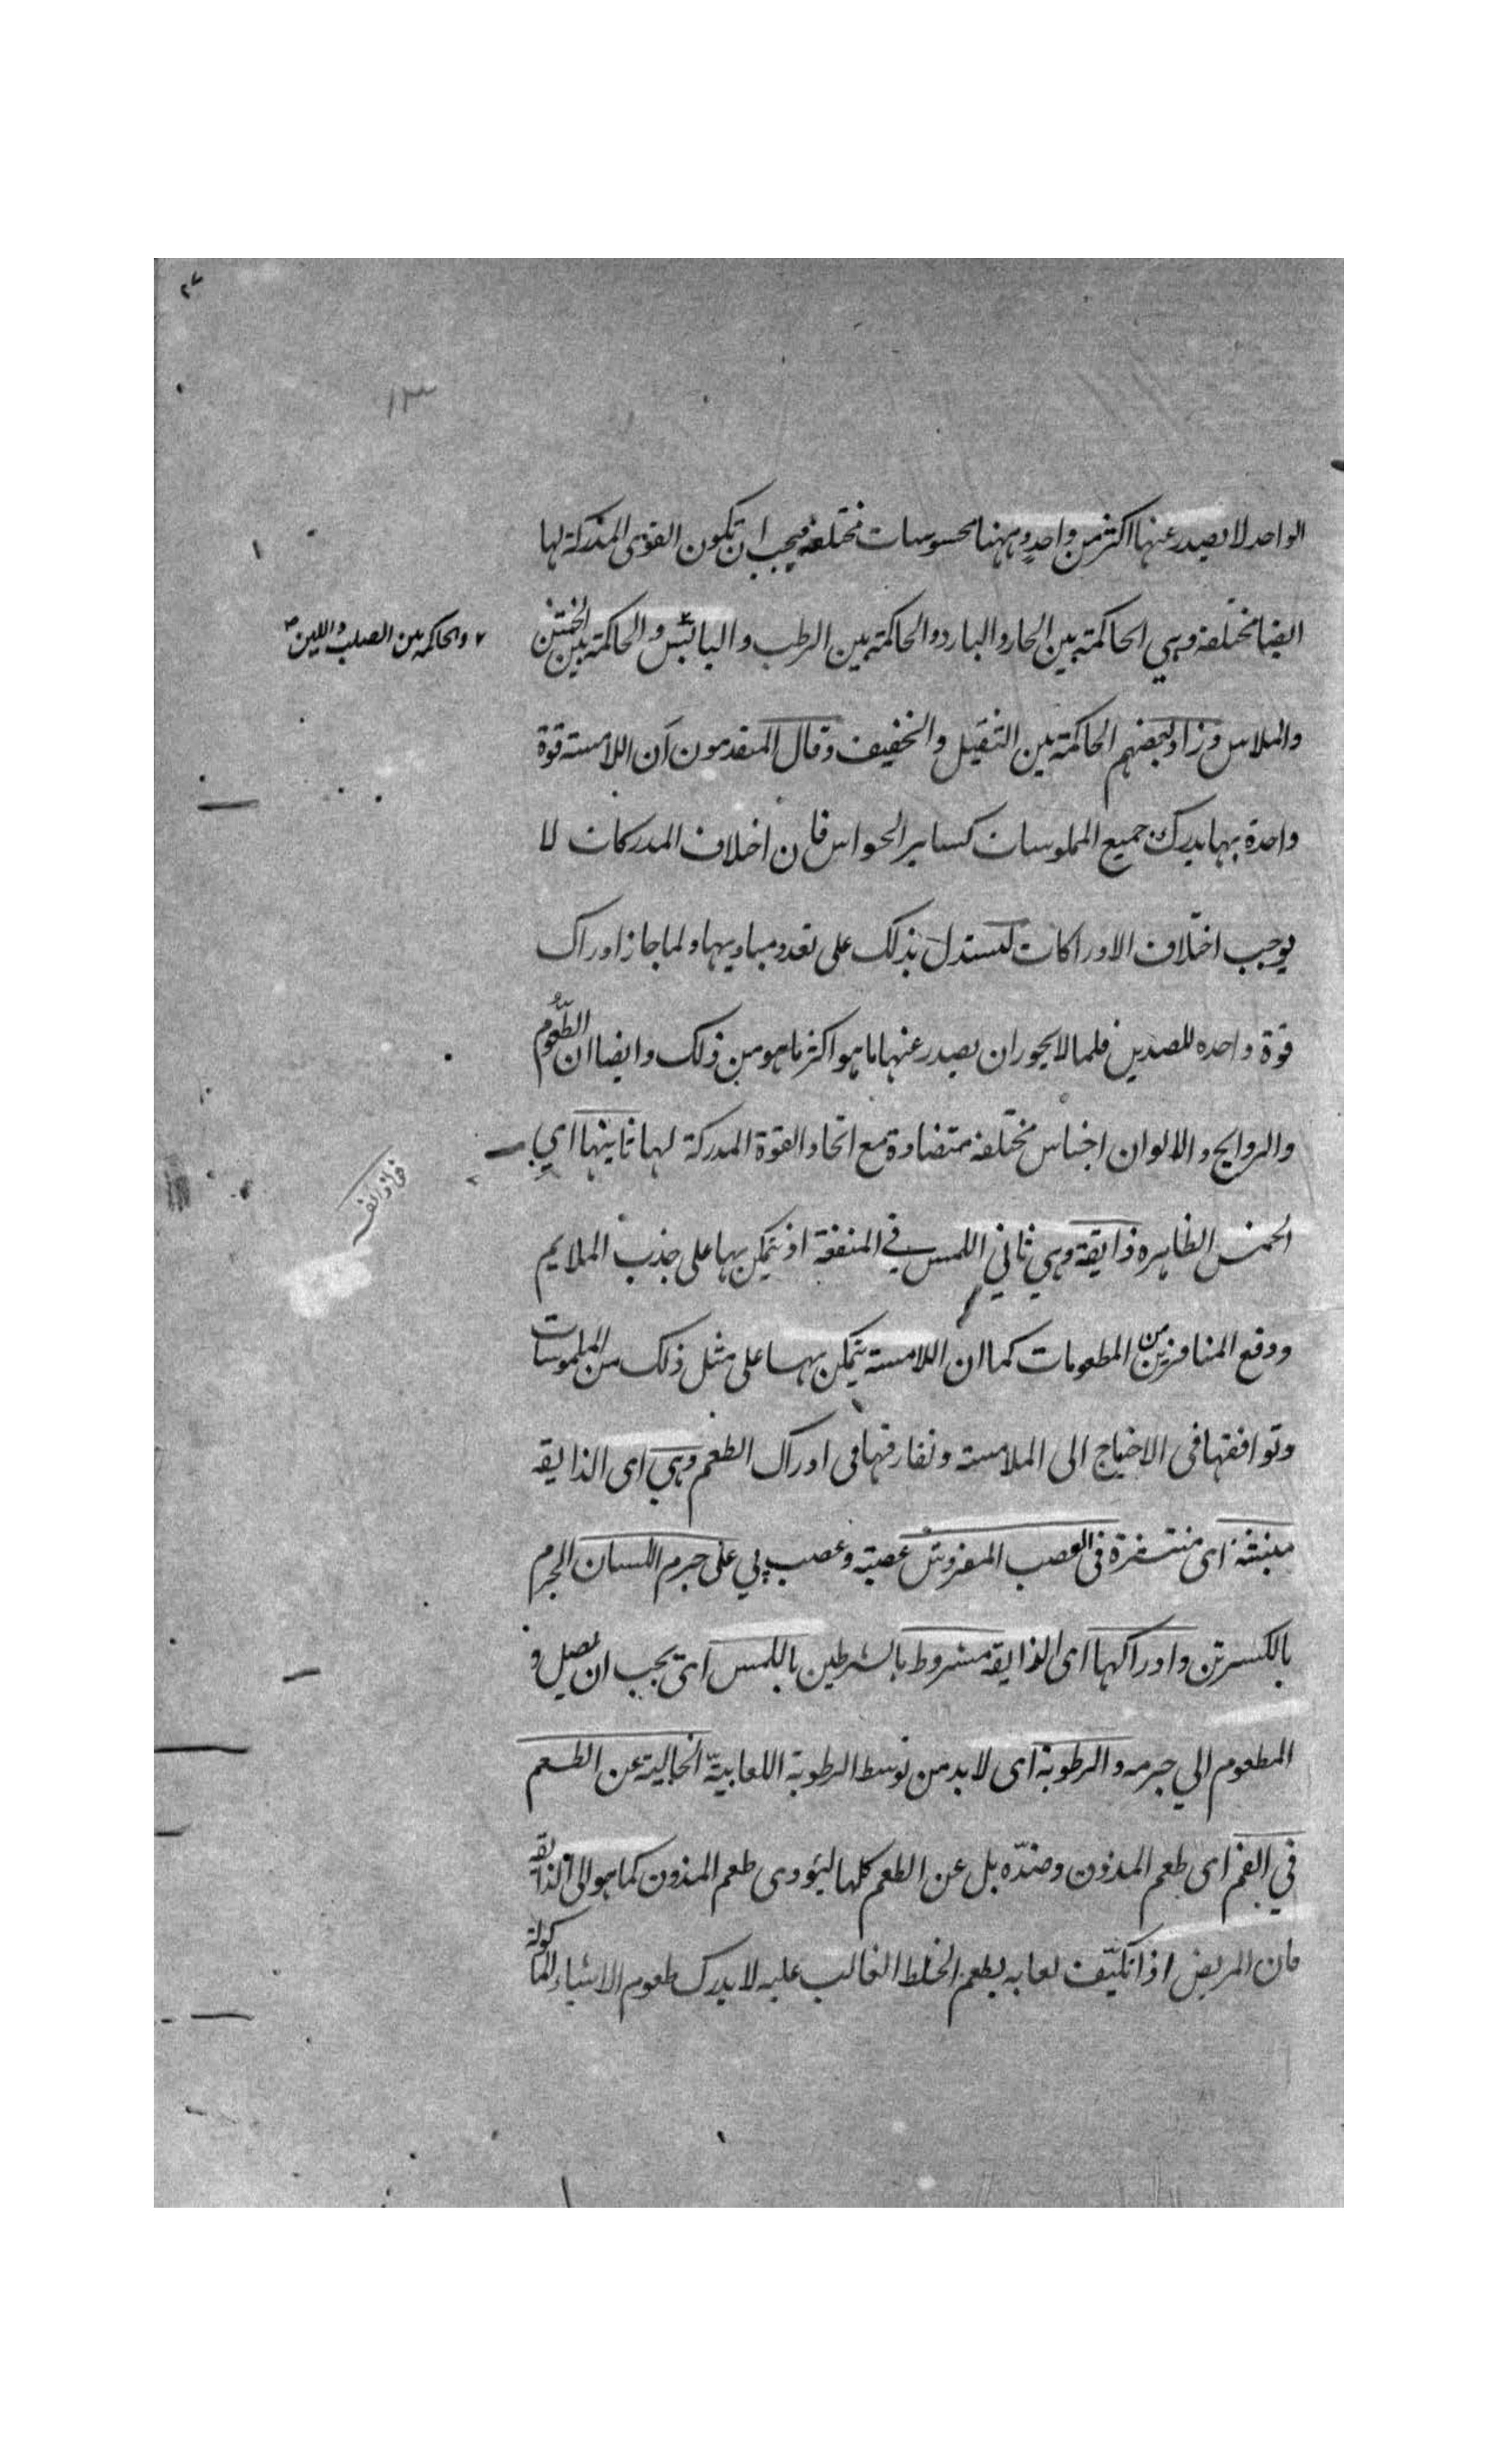 الواحد لا يصدر عنها اكثر من واحد وههنا محسوسات مختلفة فيجب ان تكون القوى المدركة لها
ايضا مختلفة وهي الحاكمة بين الحار والبارد والحاكمة بين الرطب واليابس والحاكمة بين الخشن
٢ والحاكمة بين الصلب واللين
والملاس وزاد بعضهم الحاكمة بين الثقيل والخفيف وقال المتقدمون ان اللامسة قوة
واحدة بها يدرك جميع الملموسات كساير الحواس فان اختلاف المدركات لا
يوجب اختلاف الادراكات ليستدل بذلك على تعدد مباديها ولما جاز ادراك
قوة واحده للضدين فلما لا يجوز ان يصدر عنها ما هو اكثر ما هو من ذلك وايضا ان الطعوم
والروايح والالوان اجناس مختلفة متضادة مع اتحاد القوة المدركة لها ثانيتها اي
الخمس الظاهره ذايقة وهي ثاني اللمس في المنفعة اذ يتمكن بها على جذب الملايم
ودفع المنافر من المطعومات كما ان اللامسة يتمكن بها على مثل ذلك من الملموسات
وتوافقها في الاحتياج الى الملامسة وتفارقها في ادراك الطعم وهي اى الذايقة
منبثة اى منتشرة في العصب المفروش عصبة وعصب پي على جرم اللسان الجرم
بالكسر تن وادراكها اى الذايقة مشروط بالشرطين باللمس اى يجب ان يصل و
المطعوم الي جرمه والرطوبة اى لا بد من توسط الرطوبة اللعابية الخالية عن الطعم
في الفم اى طعم المذوق وضده بل عن الطعم كلها ليؤدى طعم المذوق كما هو الى الذايقة
فان المريض اذا تكيف لعابه بطعم الخلط الغالب عليه لا يدرك طعوم الاشياء الماكولة